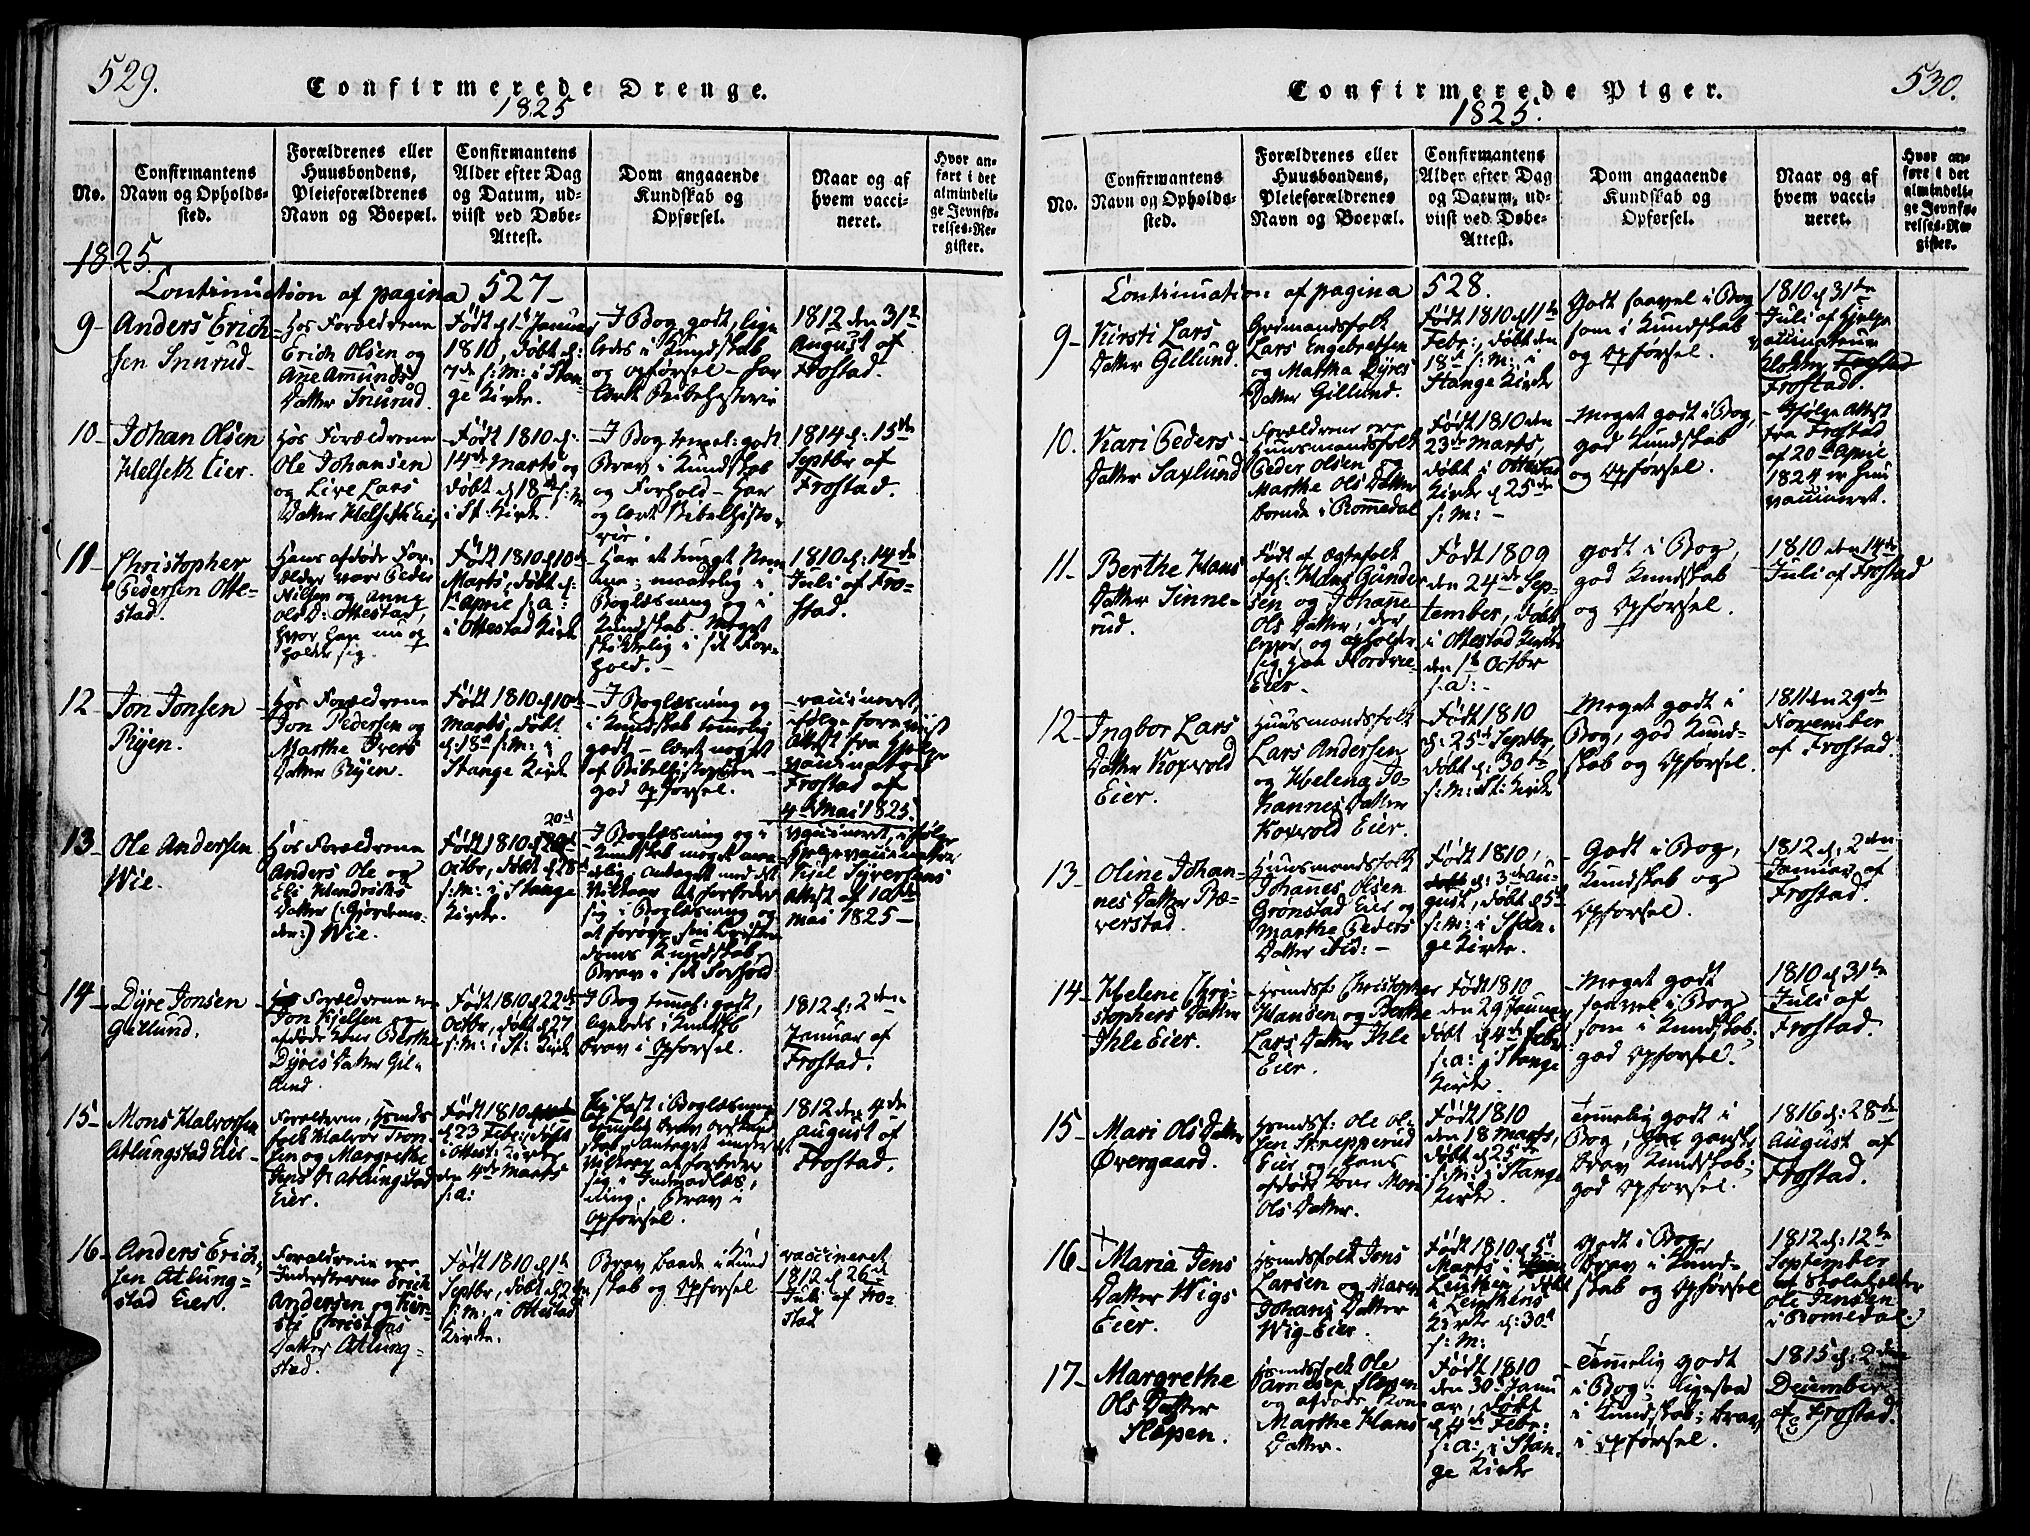 529.
Confirmerede Drenge.
1825
No.
Confirmantens
Navn og Opholds-
sted.
Forældrenes eller
Huusbondens,
Pleieforældrenes
Navn og Boepæl.
Confirmantens
Alder efter Dag
og Datum, ud-
viist ved Døbe-
Attest.
Dom angaaende
Kundskab og
Opførsel.
Naar og af
hvem vacci-
neret.
Hvor an-
ført i det
almindeli-
ge Jevnfø-
relses-Re-
gister.
1825.
Continuation af pagina 527-
9-
Anders Erich-
sen Snurud-
Hos Forældrene
Erich Olsen og
Anne Amunds
Datter Snurud.
Født d. 1te Januar
1810, døbt d:
7de s: M: i Stan-
ge Kirke.
I Bog godt, lige
ledes i Kundskab
og opførsel - har
lært Bibelhistorie
1812 den 31te
August af
Frostad.
10-
Johan Olsen
Helseth Eier.
Hos Forældrene
Ole Johansen
og Live Lars
Datter Helseth Eier
Født 1810 d:
14de Marts og
døbt d 18de s: M
i St: Kirke.
I Bog temmel: godt
Brav i Kundskab
og Forhold - Har
og lært Bibelhisto-
rie.
1814 d: 15de
Septbr af
Frostad.
11-
Christopher
Pedersen Otte-
stad.
Hans afdøde For-
ælder var Peder
Nilsen og Anne
Ols D: Ottestad,
hvor han nu op
holder sig.
Født 1810 d 10de
Marts, døbt d:
1te April s: a:
i Ottestad Kirke
Har et tungt Nem
me; maadelig i
Boglæsning og i
Kundskab. Meget
skikkelig i sit For-
hold.-
1810 d: 14de
Juli af Fro-
stad.
12-
Jon Jonsen
Ryen.
Hos Forældrene
Jon Pedersen og
Marthe Ivers
Datter Ryen.
Født 1810 d 10de
Marts, døbt
d: 18de s: M: i
Stange Kirke
I Boglæsning og
i Kundskab temmelig
godt - lært noget
af Bibelhistorien -
god opførsel.
vaccineret
ifølge foreviist
Attest fra Hjelpe
vaccinateur
Frostad af
4de Mai 1825.
13-
Ole Andersen
Wie.
Hos Forældrene
Anders Ole og
Eli Hendrichs
Datter (: Gjordemo-
der:) Wie.
Født 1810 d 20de
Octbr, døbt d 28de
s: M: i Stange
Kirke.
I Boglæsning og i
Kundskab meget maa-
delig. antaget med det
Vilkaar at forbedre
sig i Boglæsning og
at forøge sin Christen
doms Kundskab,
Brav i sit Forhold.
vaccineret, ifølge
Hjelpevaccinateur
Syversens
Attest af 10de
Mai 1825-
14-
Dyre Jonsen
Gillund.
Hos Forældrene er
Jon Kjelsen og
afdøde Kone Berthe
Dyres Datter Gil-
lund.
Født 1810 d 22de
Octbr, døbt d 27
s: M: i St: Kirke
I Bog temmel: godt,
ligeledes i Kundsk:
brav i Opførsel.
1812 d: 2den
Januar af
Frostad.
15-
Mons Halvorsen
Atlungstad Eier-
Forældrene, Huusmds
folk Halvor Tron-
sen og Margrethe
Jens D: Atlungstad
Eier.
Født 1810
d 23 Febr: døbt
i Ottest: Kirke
den 4de Marts
s: a:
Ej fast i Boglæsning
temmelig brav Kund
skab, antaget under
Vilkaar at forbedre
sig i Indenadlæs-
ning. Brav i
Opførsel.
1812 den 4de
August af
Frostad.
16-
Anders Erich-
sen Atlung-
stad Eier.
Forældrene ere
Indersterne Erich
Andersen og Kir-
sti Christens
Datter Atlung-
stad.
Født 1810 d 1te
Septbr, døbt d 2den
s: M: i Ottestad
Kirke.
Brav baade i Kund
skab og Opførsel
vaccineret
1812 d 26de
Juli af Fro-
stad
530.
Confirmerede Piger.
1825.
No.
Confirmantens
Navn og Opholds-
sted.
Forældrenes eller
Huusbondens,
Pleieforældrenes
Navn og Boepæl.
Confirmantens
Alder efter Dag
og Datum, ud-
viist ved Døbe-
Attest.
Dom angaaende
Kundskab og
Opførsel.
Naar og af
hvem vacci-
neret.
Hvor an-
ført i det
almindeli-
ge Jevnfø-
relses-Re-
gister.
Continuation af pagina 528.
9-
Kirsti Lars
Datter Gillund.
Grdmandsfolk
Lars Engebretsen
og Martha Dyres
Datter Gillund.
Født 1810 d 11te
Febr:, døbt den
18de s: M: i
Stange Kirke
Godt saavel i Bog
som i Kundskab
og opførsel.
1810 d 31te
Juli af Hjelpe
vaccinateur
Klokker Frostad
Frostad.
10.
Kari Peders
Datter Saxlund
Forældrene ere
Huusmandsfolk
Peder Olsen og
Marthe Ols Datter
boende i Romedal
Født 1810 den
23de Marts,
døbt i Ottestad
Kirke d 25de
s: M: -
Meget godt i Bog,
god Kundskab
og opførsel.
Ifølge Attest
fra Frostad
af 20de April
1824 er hun
vaccineret.
11-
Berthe Hans
Datter Sinne-
rud.
Født af Ægtefolk
afg: Hans Gunder
sen og Johanne
Ols Datter, der
lever og opholder
sig paa Nordvie-
Eier.
Født 1809
den 24de Sep-
tember, døbt
i Ottestad Kirke
den 1te Octbr
s: a: -
godt i Bog,
god Kundskab
og Opførsel.
1810 den 14de
Juli af Frostad
12-
Ingbor Lars
Datter Korvold
Eier.
Huusmandsfolk
Lars Andersen
og Helena Jo-
hannes Datter
Korvold Eier.
Født 1810
d: 25de Septbr,
døbt d: 30te
s: M: St: Kirke
Meget godt i
Bog, god Kund-
skab og Opførsel.
1811 den 29de
November
af Frostad.
13-
Oline Johan-
nes Datter Bæ-
verstad.
Huusmandsfolk
Johannes Olsen
Grønstad Eier og
Marthe Peders
Datter ibid: -
Født 1810,
d: 3de Au-
gust, døbt d 5te
s: M: i Stan-
ge Kirke.
Godt i Bog,
Kundskab og
Opførsel.
1812 d: 2den
Januar af
Frostad.
14-
Helene Chri-
stophers Datter
Ihle Eier.
Hmdsf: Christopher
Hansen og Berthe
Lars Datter Ihle
Eier.
Født 1810
den 29 Januar,
døbt d 4de Febr
s: a: i Stange
Kirke.
Meget godt
saavel i Bog
som i Kundskab,
god Opførsel.
1810 d 31te
Juli af
Frostad.
15-
Mari Ols Datter
Øvergaard.
Hmdsf: Ole Ol-
sen Skrepperud
Eier og hans
afdøde Kone Mari
Ols Datter.
Født 1810
den 18 Marts,
døbt d 25de
s: M: i Stange
Kirke.
Temmelig godt i
Bog, ganske
brav Kundskab,
god Opførsel.
1816 d: 28de
August af
Frostad.
16-
Maria Jens
Datter Wigs
Eier.
Hmdsfolk Jens
Larsen og Maren
Johans Datter
Wig-Eier.
Født 1810 d 5te
Marts i
Leuthen, døbt
i Leuthens
Kirke d: 30te
s: M:
Godt i Bog,
brav i Kund-
skab og Opførsel
1812 d: 12te
September
af Skoleholder
Ole Jensen
i Romedal.
17-
Margrethe
Ols Datter
Slopen.
Hmdsfolk Ole
Arnesen Slopen
og afdøde Kone
Marthe Hans
Datter.
Født 1810
den 30te Janu
ar, døbt
d 4de Febr:
s: a: i Stan-
ge Kirke
Temmelig godt
i Bog; ligesaa
i Kundskab; brav
i Opførsel.
1815 d: 2den
December
af Frostad.